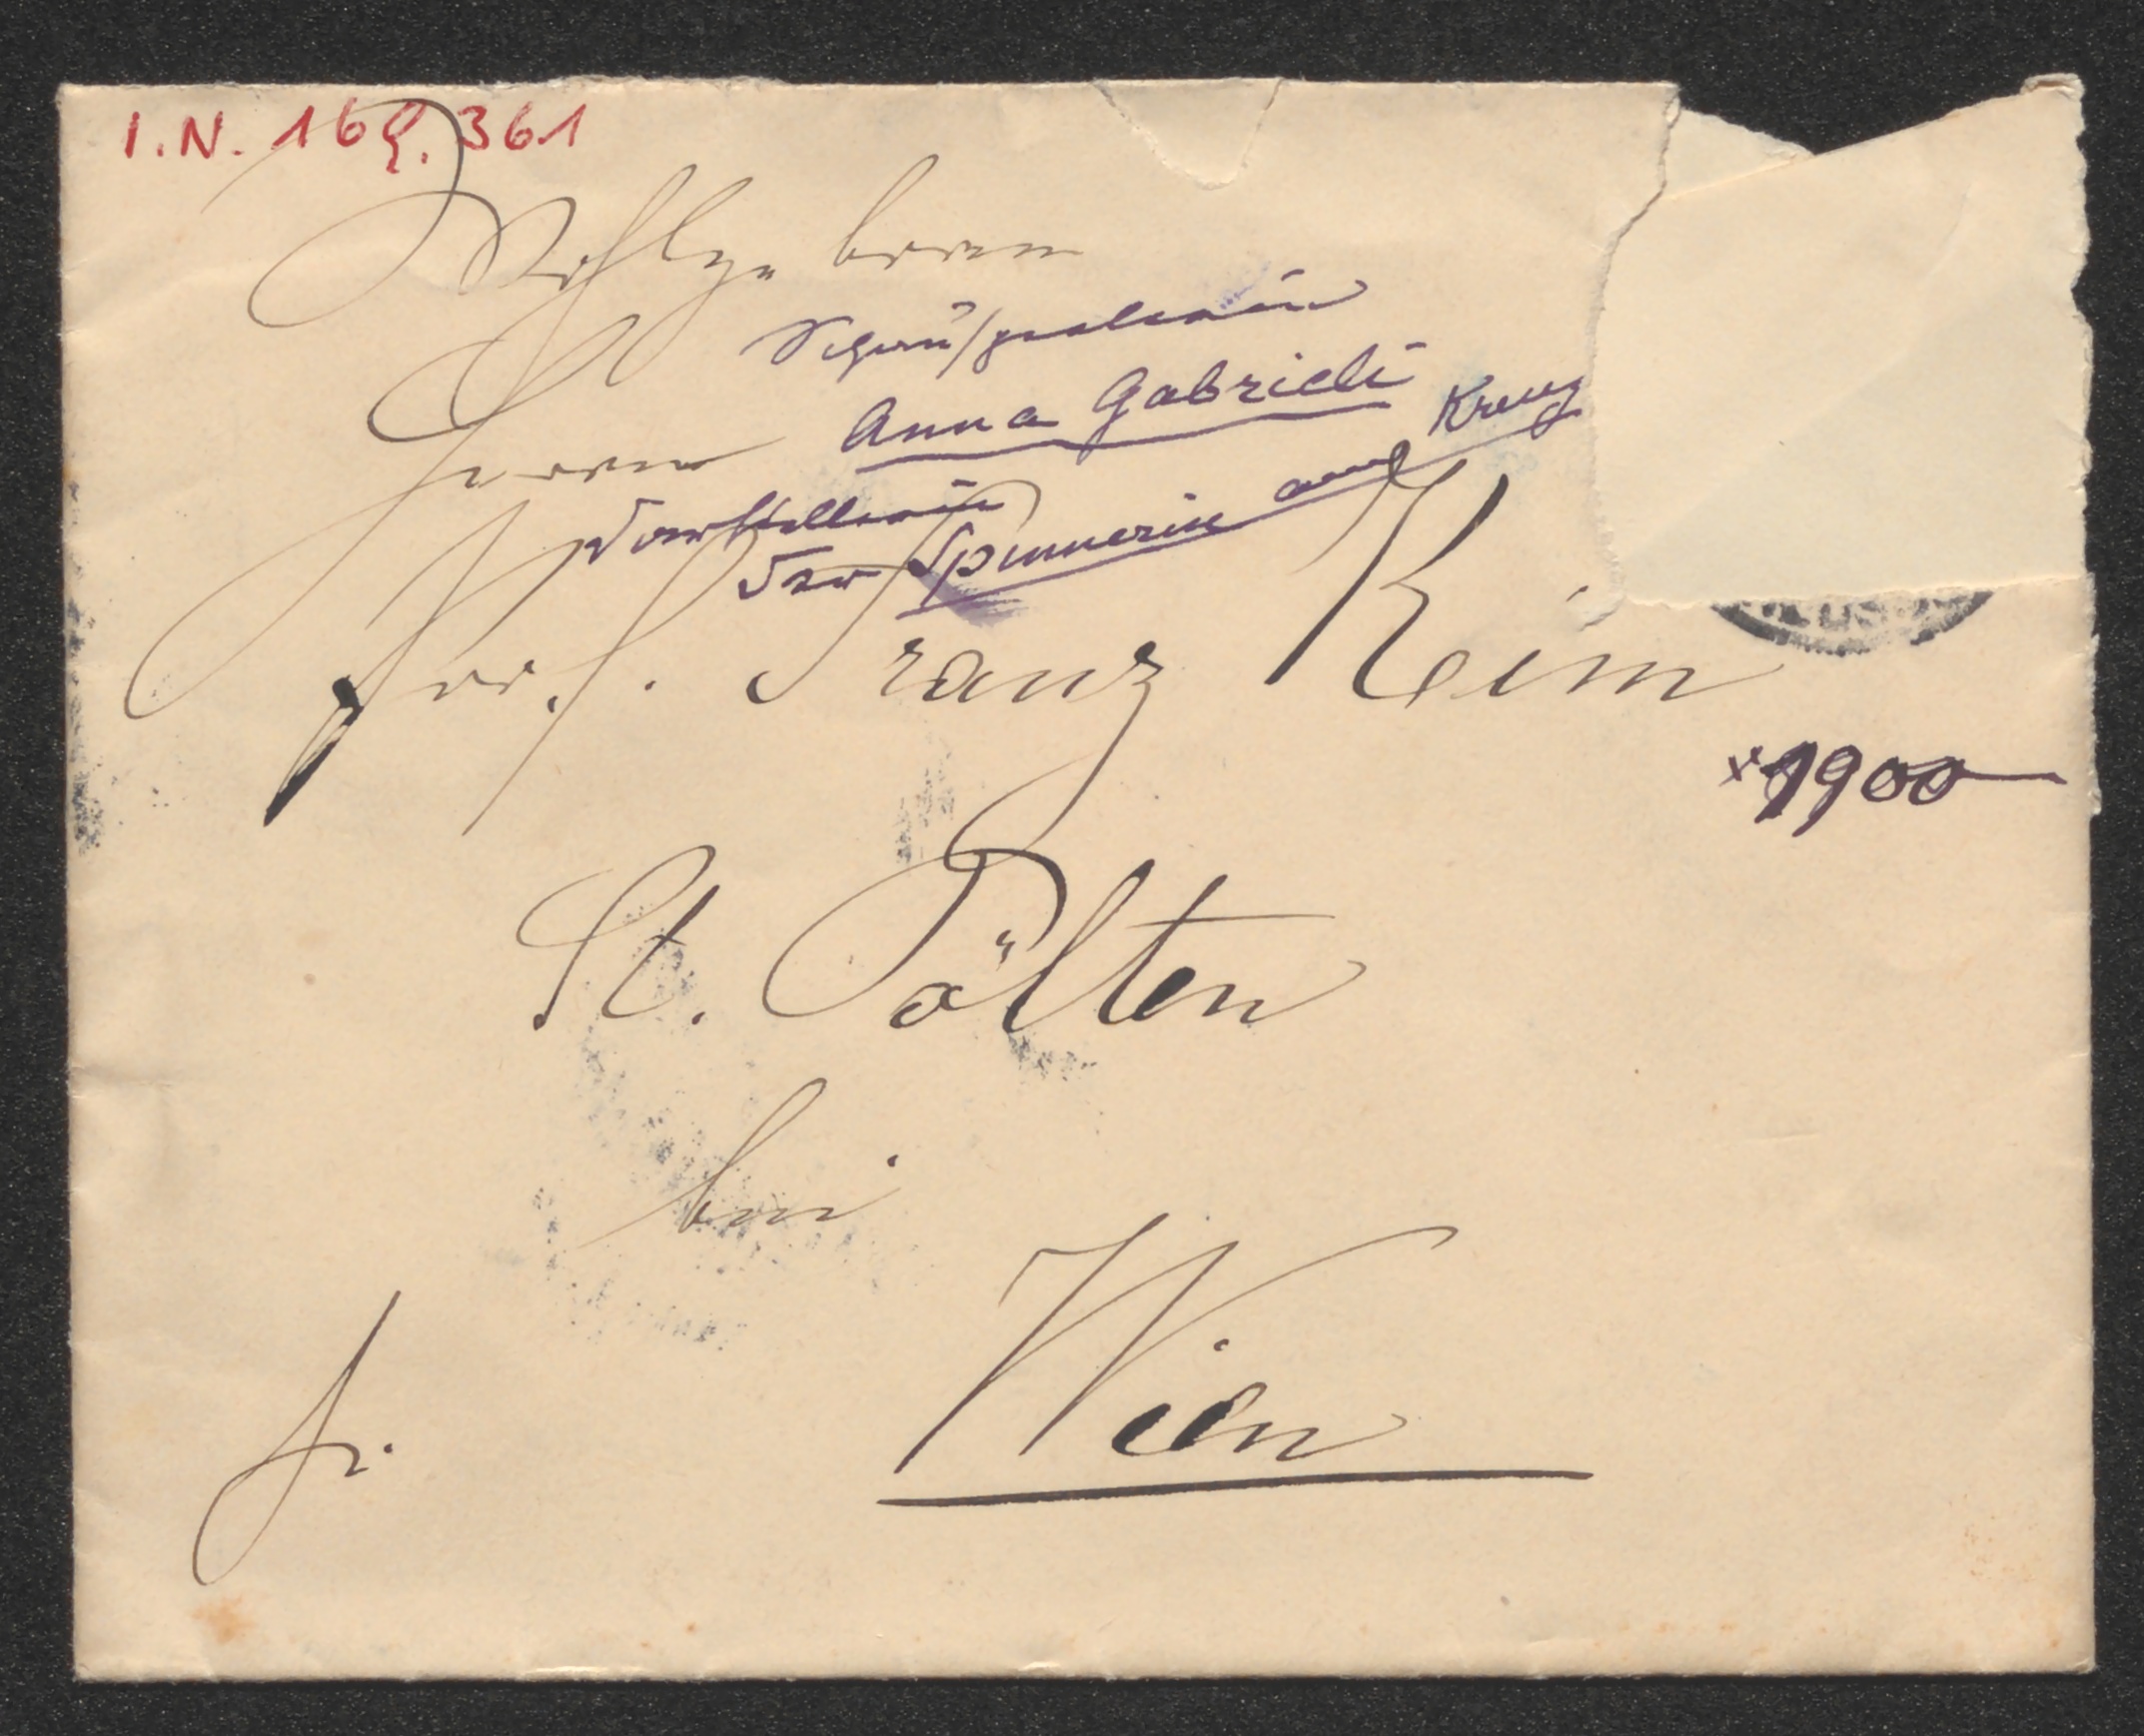 I.N. 169.361
Wohlgeboren
Schauspielerin
Anna Gabrieli
Herrn
Darstellerin
der Spinnerin am Kreuz
Prof. Franz Keim
x1900
St. Pölten
bei
Wien
fr.